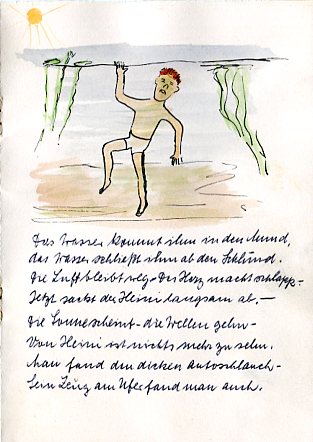 Das Wasser kommt ihm in den Mund,
das Wasser schließt ihm ab den Schlund.
Die Luft bleibt weg - Das Herz macht schlapp -
Jetzt sackt der Heini langsam ab. -
Die Sonne scheint - die Wellen gehn -
Von Heini ist nichts mehr zu sehn.
Man fand den dicken Autoschlauch -
Sein Zeug am Ufer fand man auch.